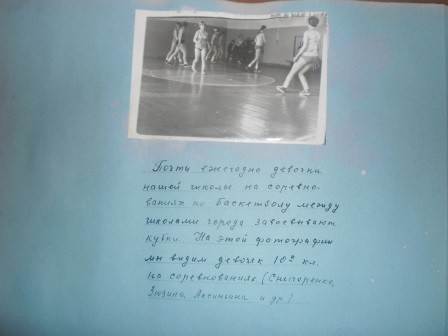 Почти ежегодно девочки
нашей школы на соревно-
ваниях по баскетболу между
школами города завоевывают
кубки. На этой фотографии
мы видим девочек 10го кл.
на соревнованиях (Снегоренко,
Зюзина, Аксинина и др.)